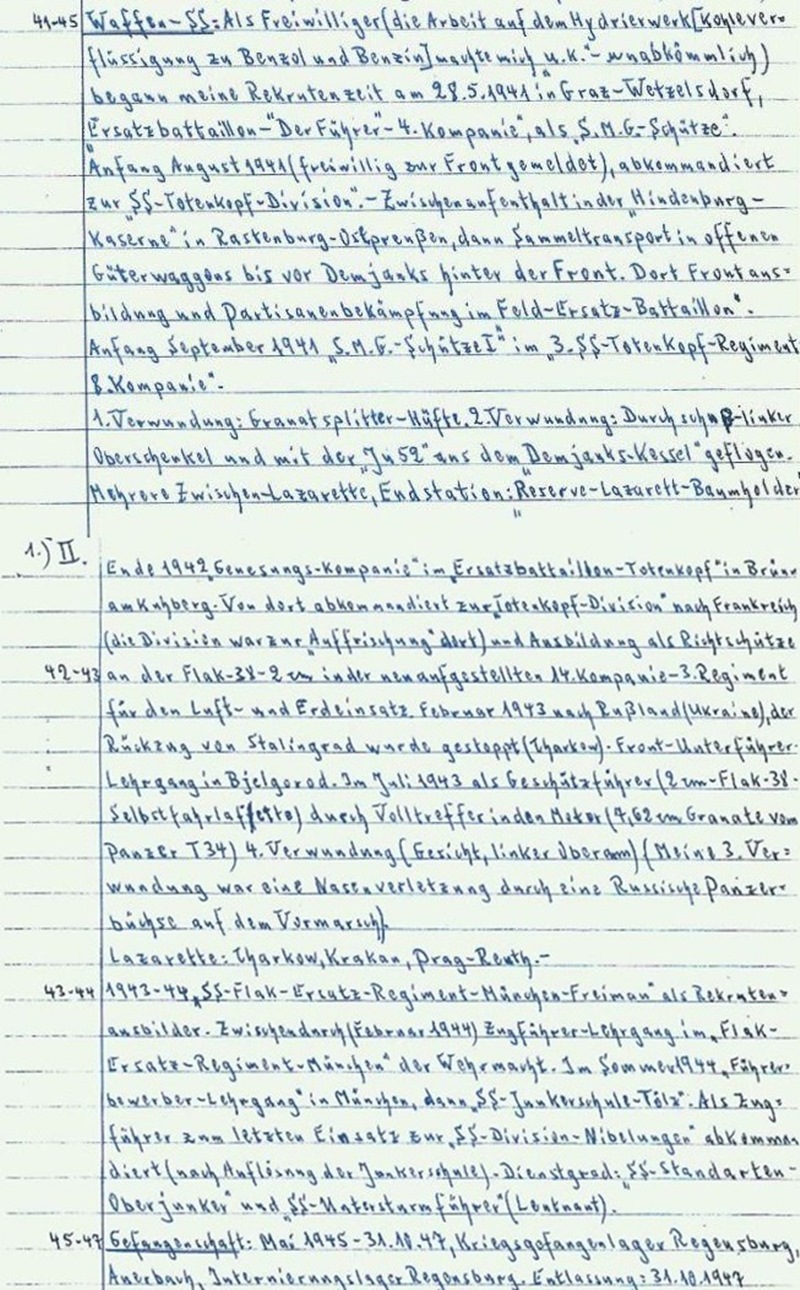 41-45 Waffen-SS: Als Freiwilliger (die Arbeit auf dem Hydrierwerk [Kohlever=
flüssigung zu Benzol und Benzin] machte mich „u.k."- unabkömmlich)
begann meine Rekrutenzeit am 28.5.1941 in Graz-Wetzelsdorf,
„Ersatzbattaillon-"Der Führer"-4. Kompanie", als „S.M.G.-Schütze".
Anfang August 1941 (freiwillig zur Front gemeldet), abkommandiert
zur „SS-Totenkopf-Division".- Zwischenaufenthalt in der „Hindenburg-
Kaserne" in Rastenburg-Ostpreußen, dann Sammeltransport in offenen
Güterwaggons bis vor Demjansk hinter der Front. Dort Frontaus=
bildung und Partisanenbekämpfung im Feld-Ersatz-Battaillon".
Anfang September 1941 „S.M.G.-Schütze I" im „3.-SS-Totenkopf-Regiment
8. Kompanie".
1. Verwundung: Granatsplitter-Hüfte. 2. Verwundung: Durchschuß-linker
Oberschenkel und mit der „Ju 52" aus dem „Demjansk-Kessel" geflogen.
Mehrere Zwischen-Lazarette, Endstation: „Reserve-Lazarett-Baumholder"
1.) II.
Ende 1942 „Genesungs-Kompanie" im „Ersatzbattaillon-Totenkopf" in Brünn
am Kuhberg. Von dort abkommandiert zur „Totenkopf-Division" nach Frankreich
(die Division war zur „Auffrischung" dort) und Ausbildung als Richtschütze
42-43 an der Flak-38-2 cm in der neu aufgestellten 14. Kompanie-3. Regiment
für den Luft- und Erdeinsatz. Februar 1943 nach Rußland (Ukraine), der
Rückzug von Stalingrad wurde gestoppt (Charkow). Front-Unterführer-
Lehrgang in Bjelgorod. Im Juli 1943 als Geschützführer (2 cm-Flak-38-
Selbstfahrlaffette) durch Volltreffer in den Motor (7,62 cm Granate vom
Panzer T34) 4. Verwundung (Gesicht, linker Oberarm) (Meine 3. Ver=
wundung war eine Nasenverletzung durch eine Russische Panzer=
büchse auf dem Vormarsch).
Lazarette: Charkow, Krakau, Prag-Reuth.-
43-44 1943-44 „SS-Flak-Ersatz-Regiment-München-Freiman" als Rekruten=
ausbilder. Zwischendurch (Februar 1944) Zugführer-Lehrgang im „Flak-
Ersatz-Regiment-München" der Wehrmacht. Im Sommer 1944 „Führer=
bewerber-Lehrgang" in München, dann „SS-Junkerschule-Tölz". Als Zug=
führer zum letzten Einsatz zur „SS-Division-Nibelungen" abkomman
diert (nach Auflösung der Junkerschule). Dienstgrad: „SS-Standarten-
Oberjunker" und „SS-Untersturmführer" (Leutnant).
45-47 Gefangenschaft: Mai 1945-31.10.47, Kriegsgefangenlager Regensburg,
Auerbach, Internierungslager Regensburg. Entlassung: 31.10.1947